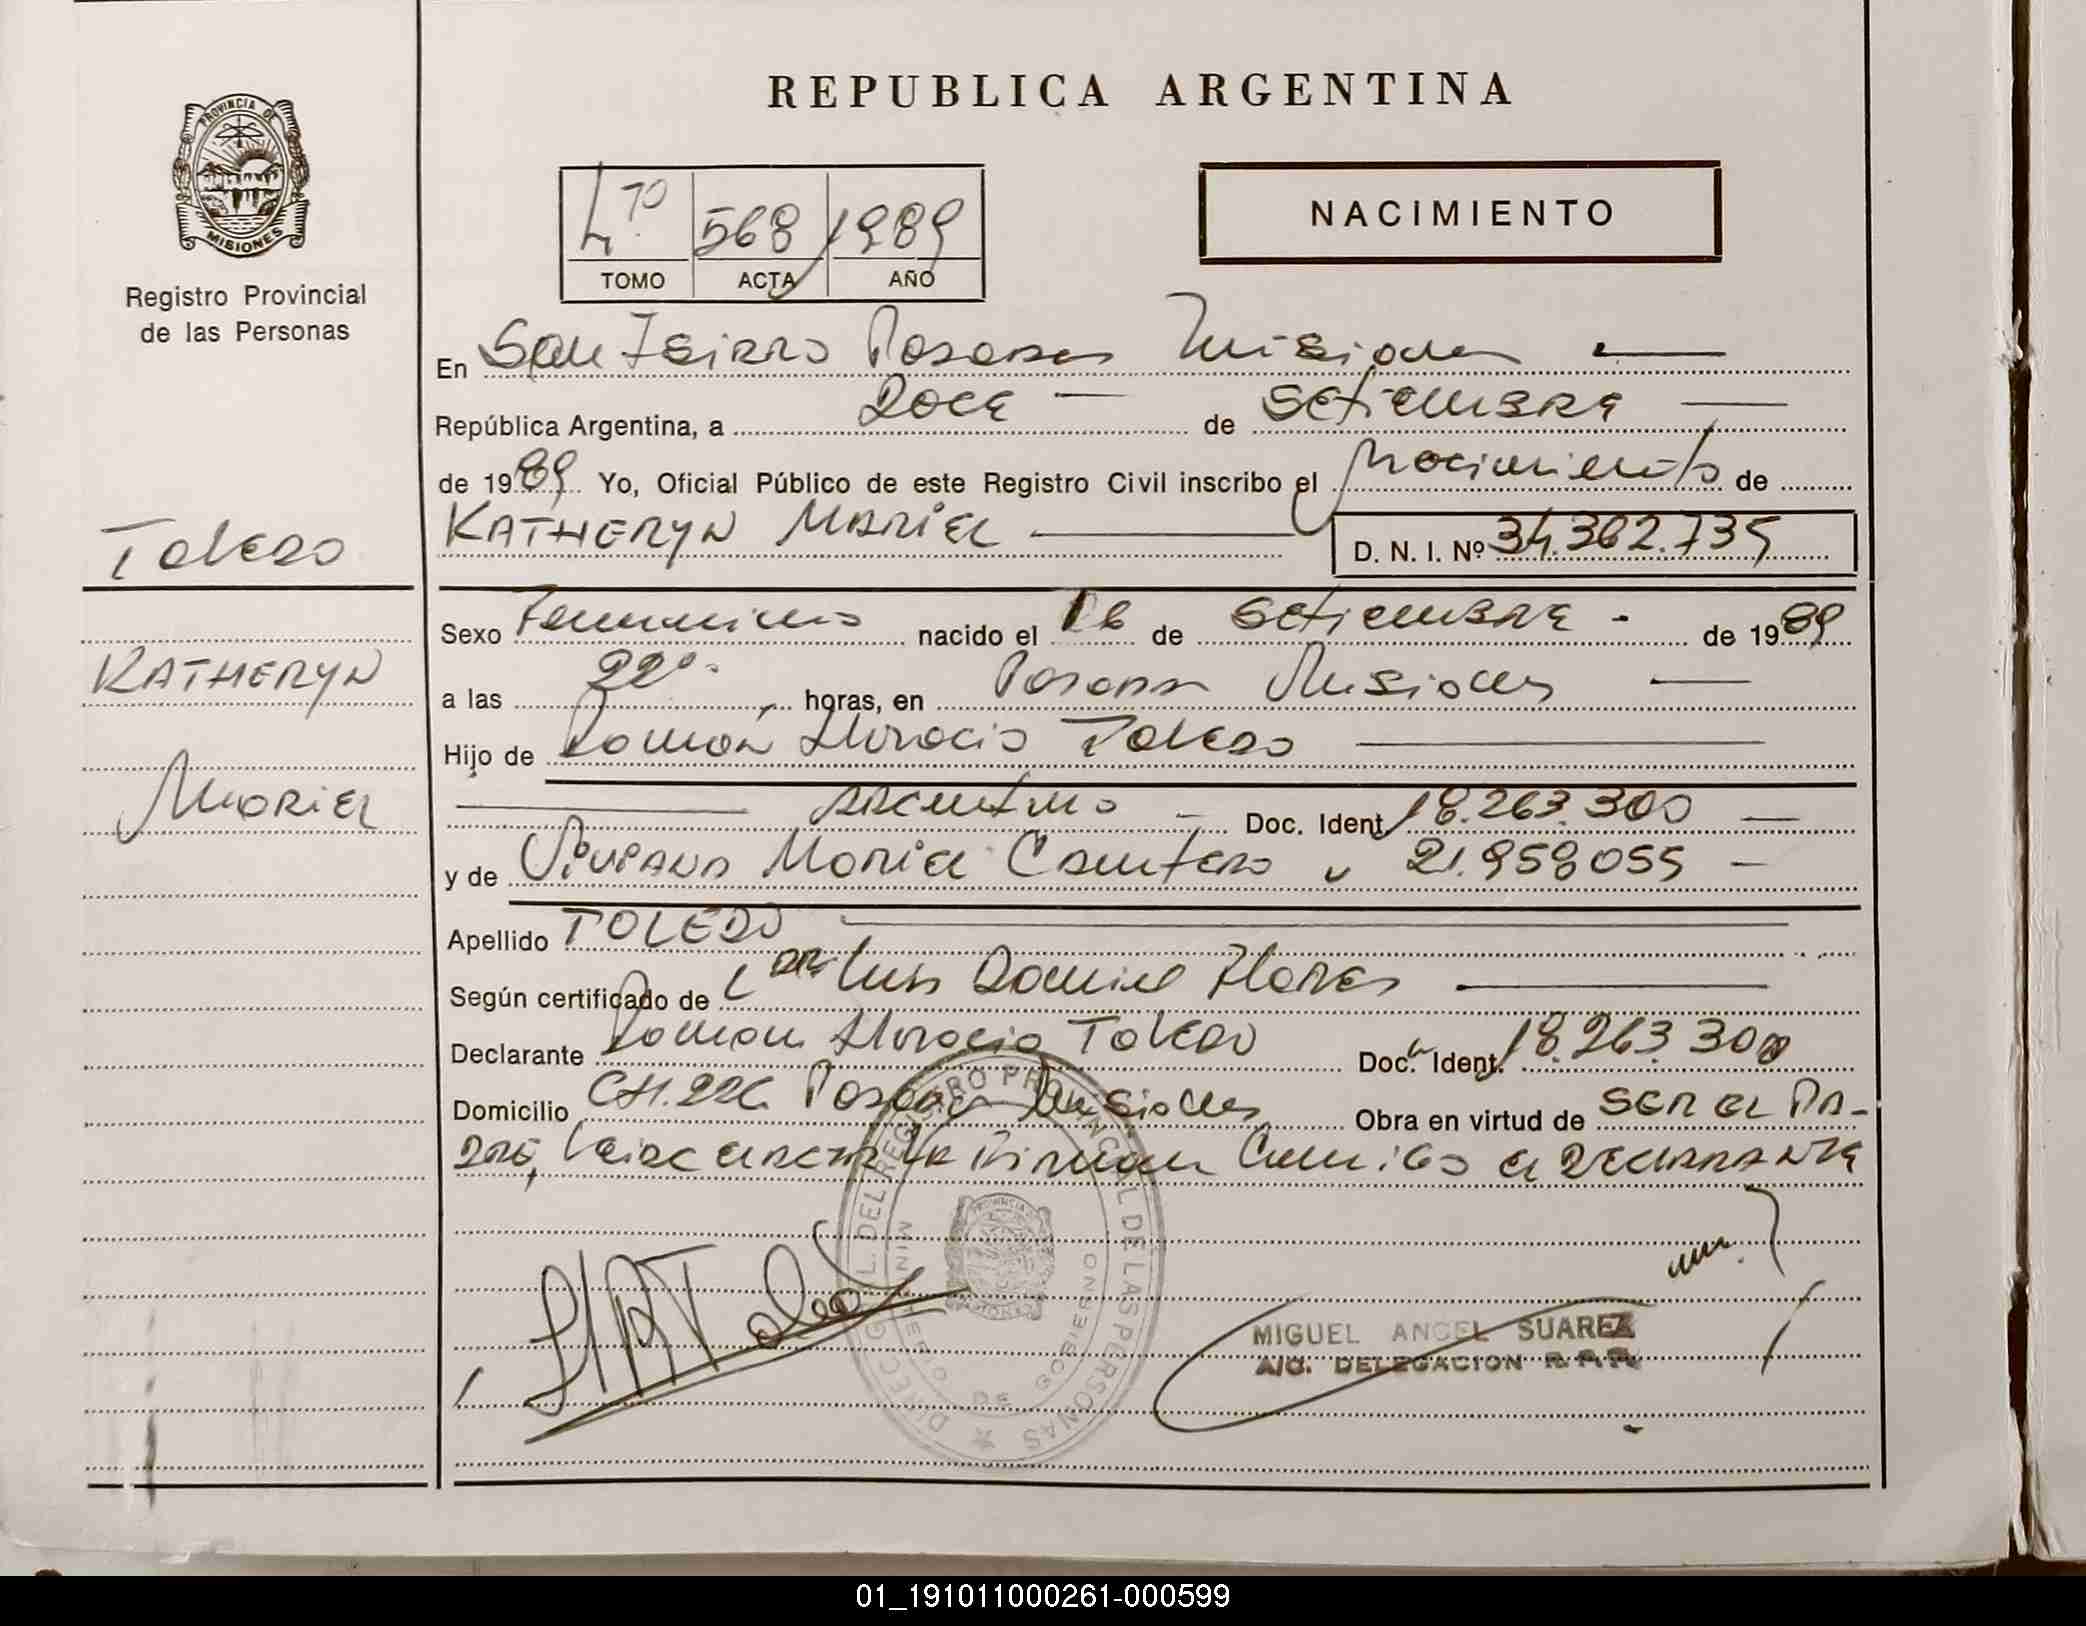 REPUBLICA ARGENTINA
PROVINCIA DE
MISIONES
Registro Provincial
de las Personas
4to 568 1989
TOMO ACTA AÑO
NACIMIENTO
En San Isidro Posadas Misiones
República Argentina, a Doce de Setiembre
de 1989 Yo, Oficial Público de este Registro Civil inscribo el Nacimiento de
Toledo
KATHERYN MARIEL
D. N. I. Nº 34.362.735
Sexo Femenino nacido el de Setiembre de 1989
KATHERYN
a las 22 horas, en Posadas Misiones
Hijo de Ramón Horacio Toledo
Mariel
Argentino Doc. Ident. 18.263.300
y de Viviana Mariel Cantero 21.959.055
Apellido TOLEDO
Según certificado de Luis Daniel Flores
Declarante Ramón Horacio Toledo Doc. Ident. 18.263.300
Domicilio CH.226 Posadas Misiones Obra en virtud de SER EL PA-
DRE, Leida el acta la Firman Conmigo el DECLARANTE
HRToledo
DIREC. GRAL. DEL REGISTRO PROVINCIAL DE LAS PERSONAS
MINISTERIO DE GOBIERNO
MIGUEL ANGEL SUAREZ
A/C. DELEGACION R. P. P.
01_191011000261-000599